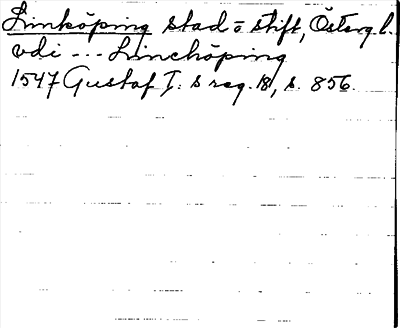 Linköping stad o stift, Österg.l.
vdi --- Linchöping
1547 Gustaf I:s reg. 18, s. 856.